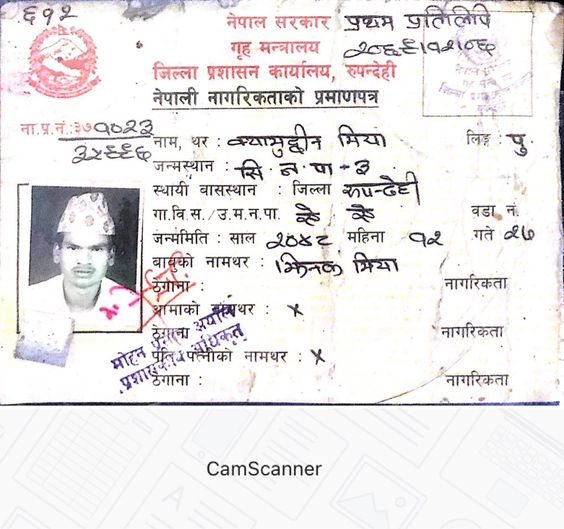 ६१२
नेपाल सरकार प्रथम प्रतिलिपि
गृह मन्त्रालय २०६६।१२।०६
जिल्ला प्रशासन कार्यालय, रुपन्देही
नेपाली नागरिकताको प्रमाणपत्र
ना.प्र.नं.: ३७१०२३
३५६६६
नाम, थर : क्यामुद्दीन मिया लिङ्ग : पु.
जन्मस्थान : सि. न. पा - ३
स्थायी वासस्थान : जिल्ला रुपन्देही
गा.वि.स./उ.म.न.पा. ऐ ऐ वडा नं.
जन्ममिति : साल २०४८ महिना १२ गते २७
बाबुको नामथर : भिनक मिया
ठेगाना : नागरिकता
आमाको नामथर : x
ठेगाना : नागरिकता
पति/पत्नीको नामथर : x
ठेगाना : नागरिकता
मोहन अर्याल
प्रशासकीय अधिकृत
CamScanner